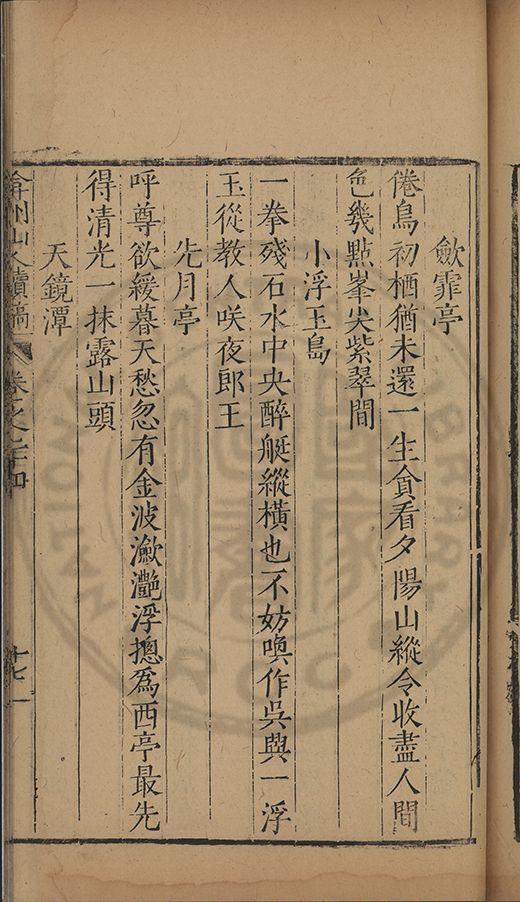 歛霏亭
倦鳥初栖猶未還一生貪看夕陽山縱令收盡人間
色幾點峯尖紫翠間
小浮玉島
一拳殘石水中央醉艇縱橫也不妨喚作吳興一浮
玉從教人咲夜郎王
先月亭
呼尊欲緩暮天愁忽有金波瀲灧浮摠爲西亭最先
得清光一抹露山頭
天鏡潭
弇州山人續稿 卷之二十四 十七